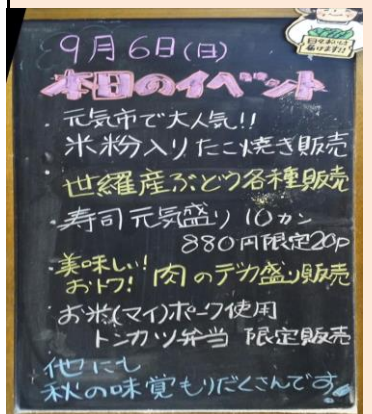 9月6日(日)
本日のイベント
元気市で大人気!!
米粉入りたこ焼き販売
・世羅産ぶどう各種販売
・寿司元気盛り 10カン
880円限定20p
・美味しい!
おトク! 肉のデカ盛り販売
・お米(マイ)ポーク使用
トンカツ弁当 限定販売
他にも
秋の味覚もりだくさんです。